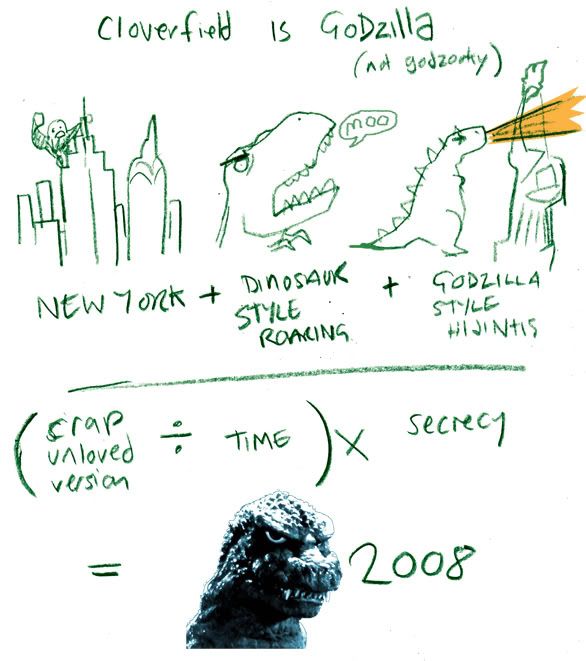 Cloverfield is GoDzilla
(not godzooky)
MOO
NEW YORK + DINOSAUR STYLE ROARING + GODZILLA STYLE HIJINTIS
(crap unloved version ÷ TIME) X secrecy
= 2008